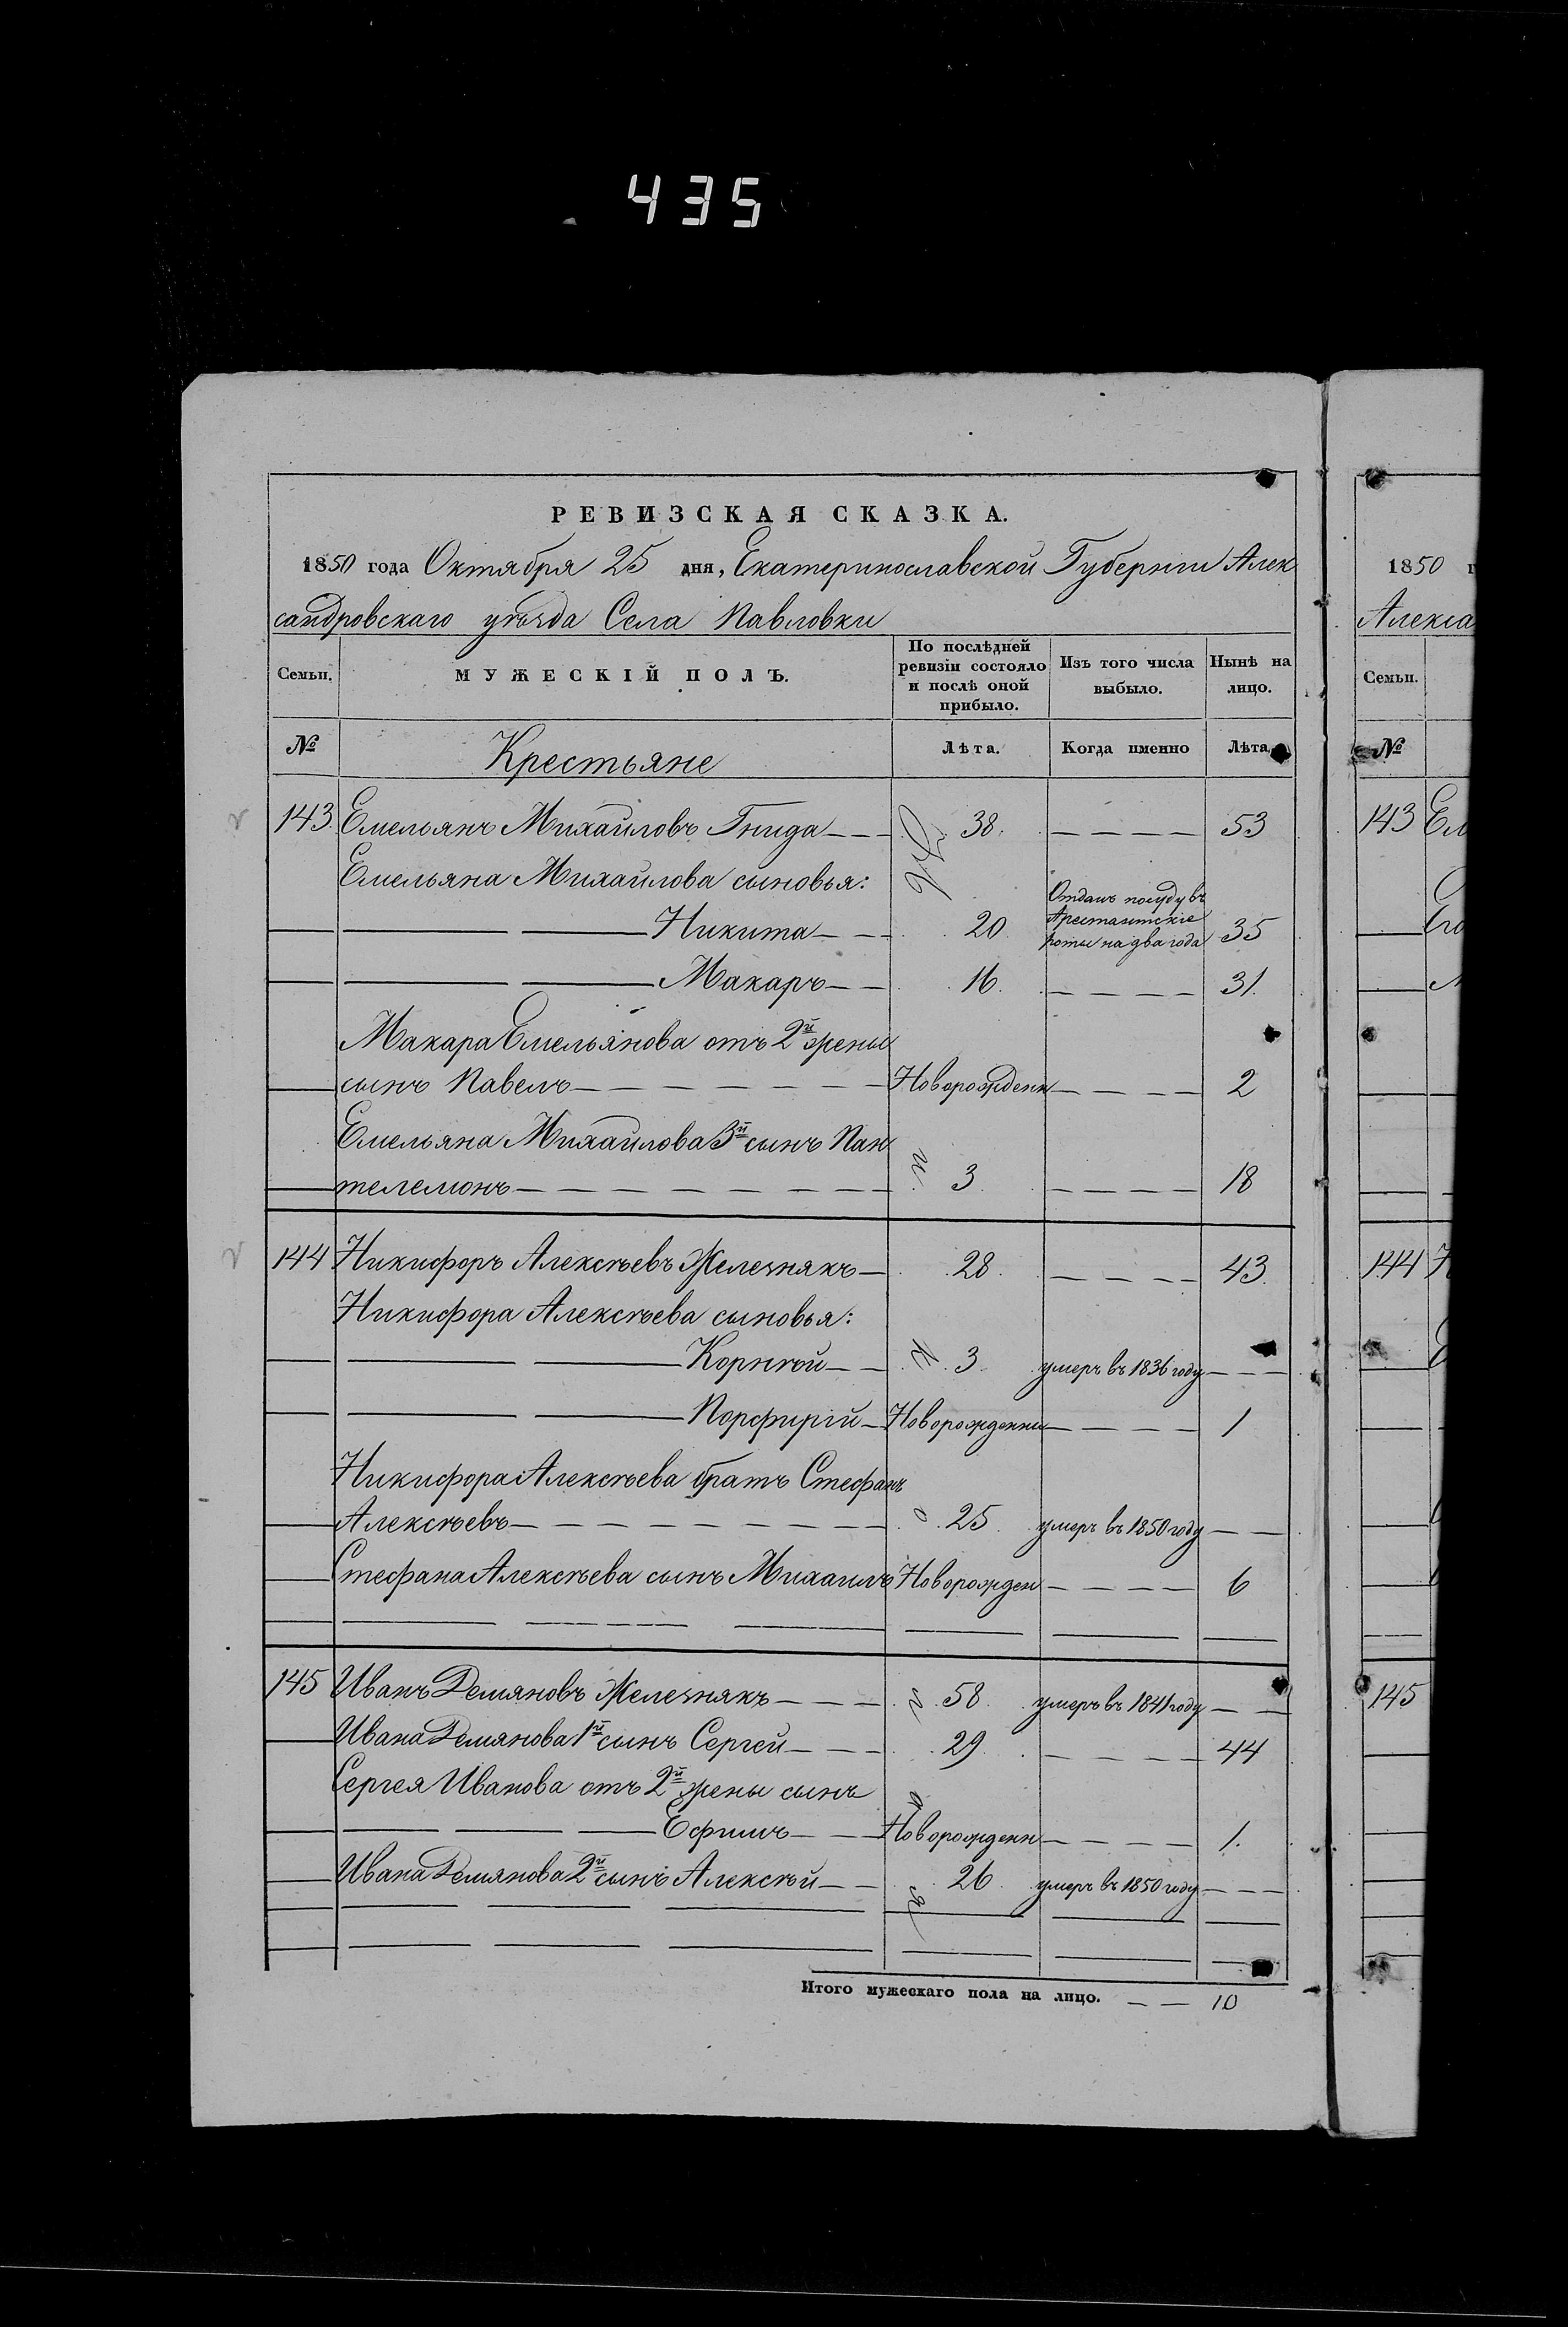 435
РЕВИЗСКАЯ СКАЗКА.
1850 года Октября 25 дня, Екатеринославской Губернии Алек
сандровскаго уѣзда Села Павловки
Семьи. МУЖЕСКІЙ ПОЛЪ. По послѣдней ревизіи состояло и послѣ оной прибыло. Изъ того числа выбыло. Нынѣ на лицо.
№ Крестьяне Лѣта. Когда именно Лѣта
143 Емельянъ Михайловъ Гнида 38. 53
Емельяна Михайлова сыновья:
Никита 20 Отданъ посуду въ Арестантскіе роты на два года 35
Макаръ 16. 31.
Макара Емельянова отъ 2й жены
сынъ Павелъ Новорожденн 2
Емельяна Михайлова 3й сынъ Пан
телемонъ 3 18
144 Никифоръ Алексѣевъ Железнякъ 28. 43.
Никифора Алексѣева сыновья:
Корнѣй 3 умеръ въ 1836 году
Порфирій Новорожденны 1
Никифора Алексѣева братъ Стефанъ
Алексѣевъ 25 умеръ въ 1850 году
Стефана Алексѣева сынъ Михаилъ Новорожден 6
145 Иванъ Демяновъ Железнякъ 58. умеръ въ 1841 году
Ивана Демянова 1й сынъ Сергей 29. 44
Сергея Иванова отъ 2й жены сынъ
Ефимъ Новорожденн 1.
Ивана Демянова 2й сынъ Алексѣй 26 умеръ въ 1850 году
Итого мужескаго пола на лицо. 10
1850 г
Алекса
Семьи.
№
143 Ем
Его
144 Н
145